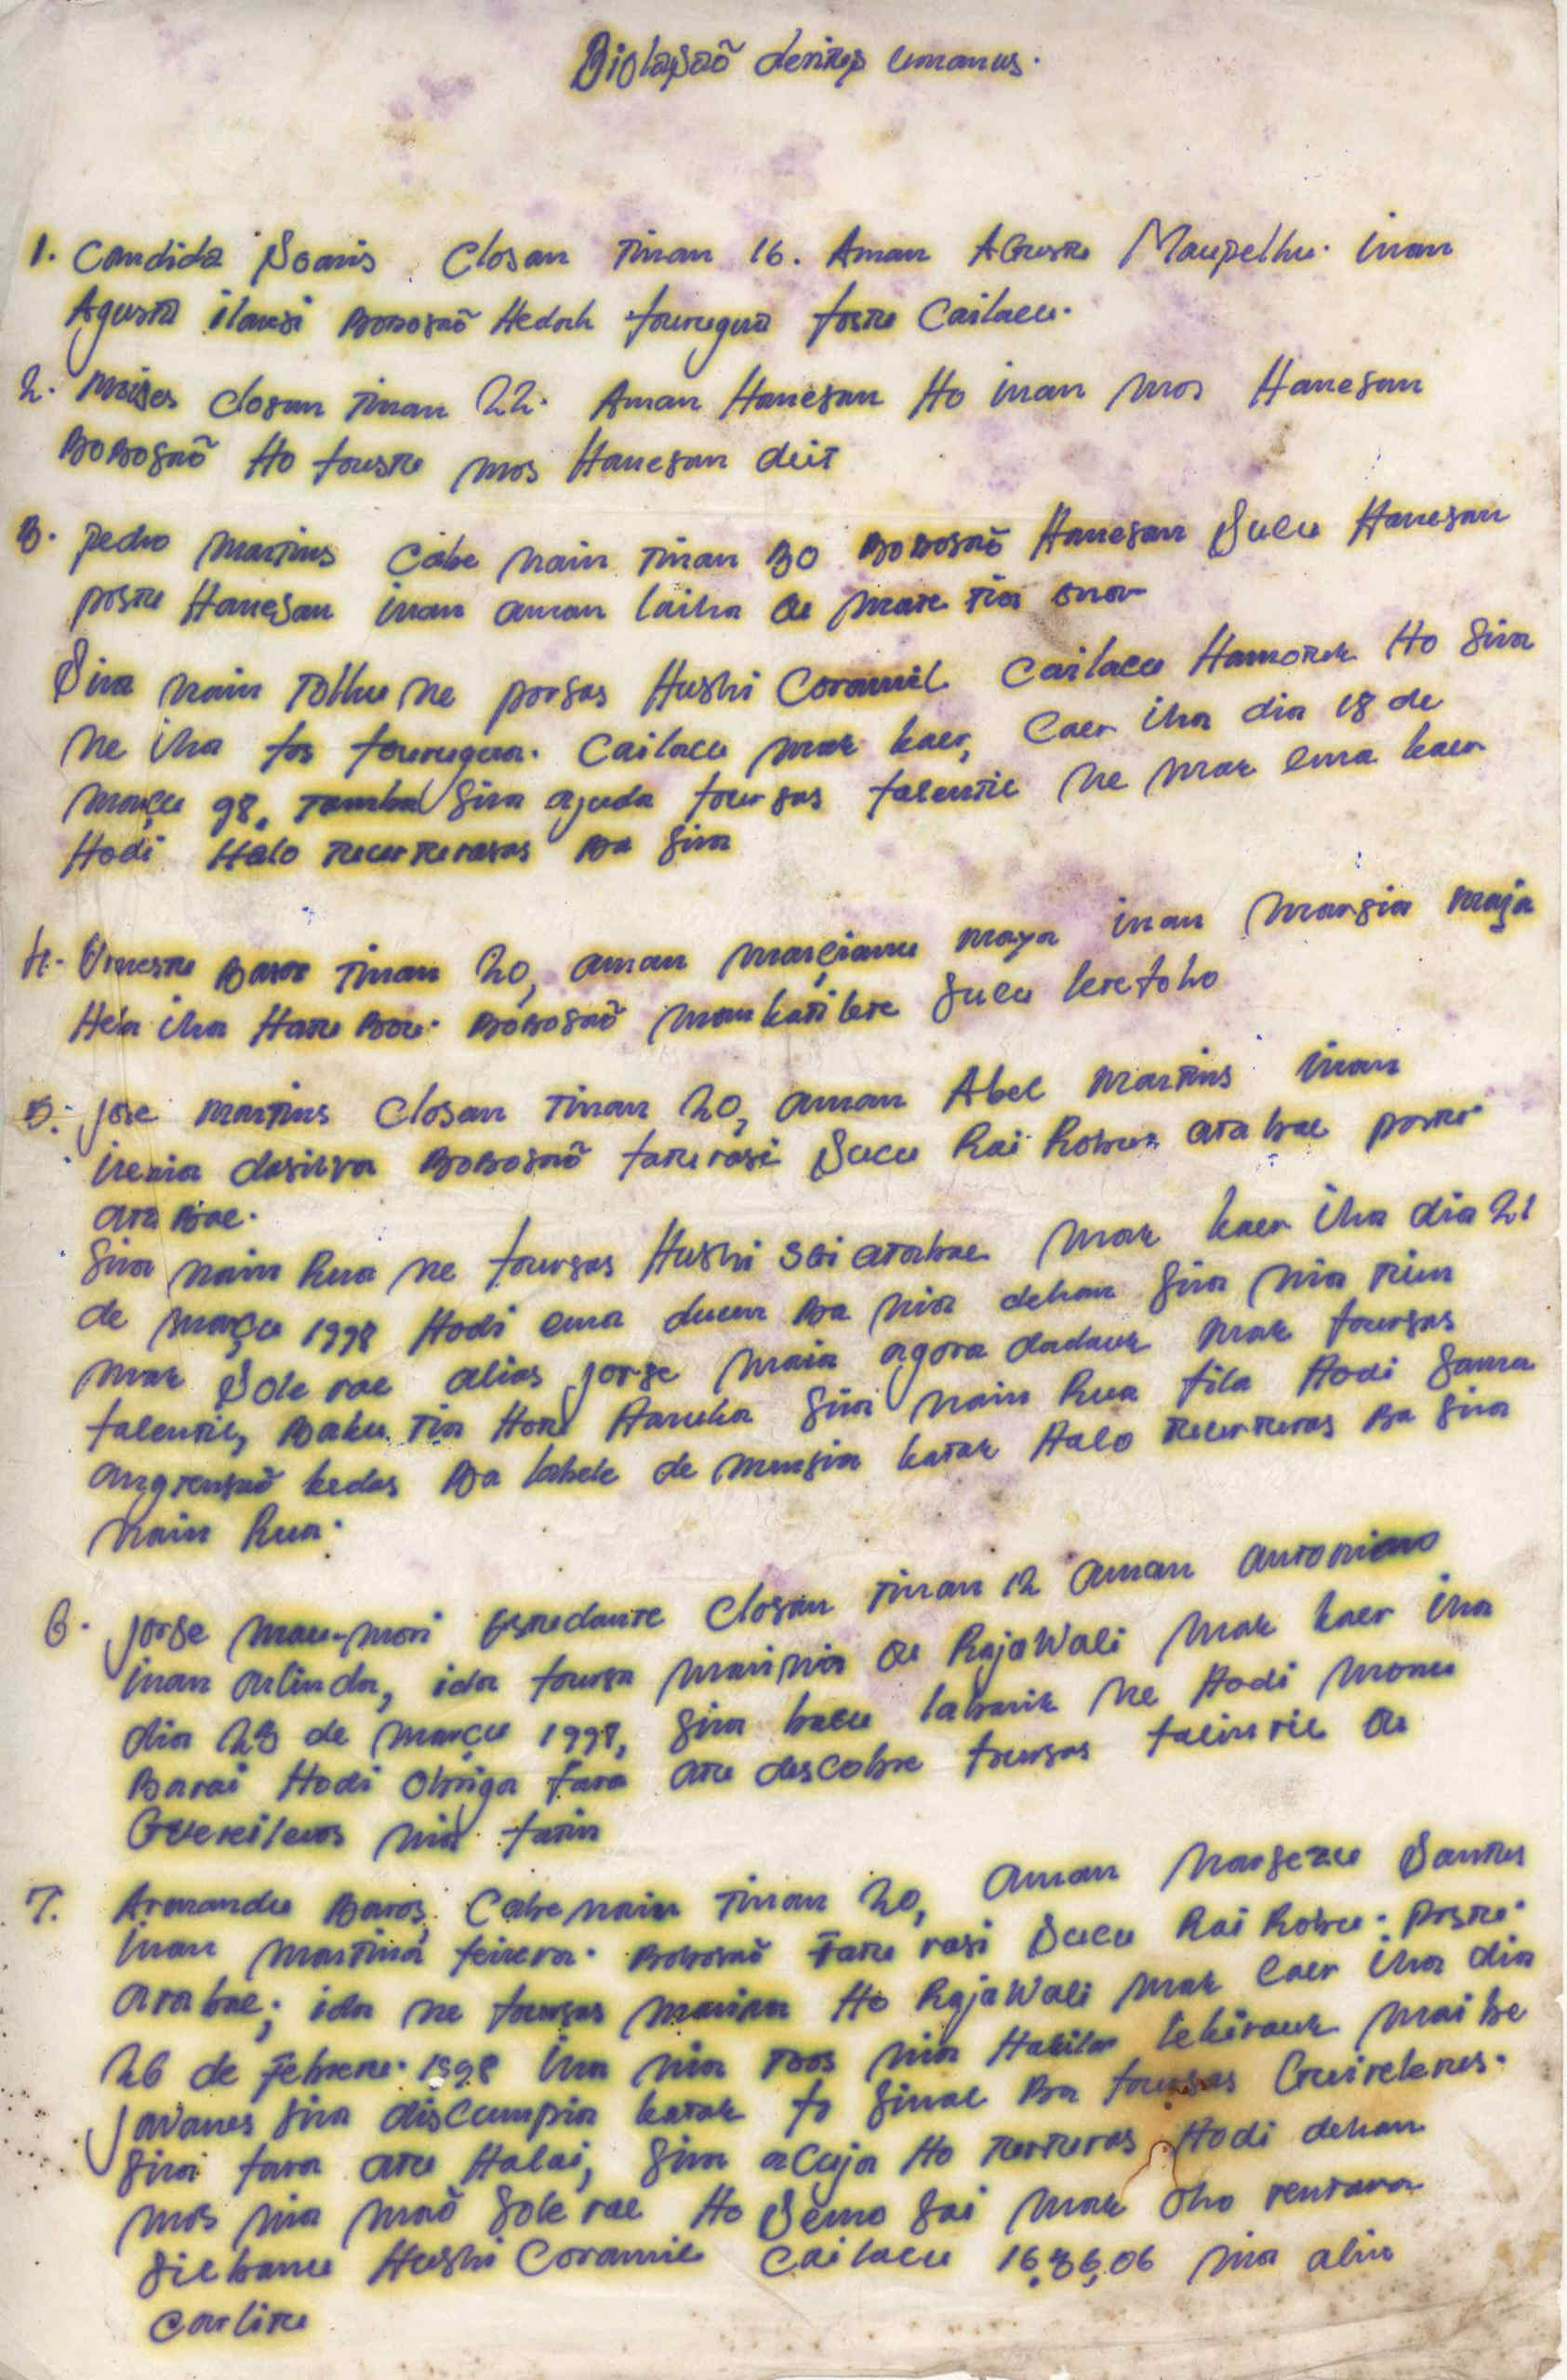 Biolasaõ deritus umanus.
1. Candida Soaris Closan Tinan 16. Aman Agustu Maupelhu. inan
Agusta ilausi Bobosaõ Hedoh Purugua Postu Cailacu.
2. Moises closan Tinan 22. Aman Hanesan Ho inan mos Hanesan
Bobosaõ Ho Poustu mos Hanesan deit
3. Pedro Martins Cabe nain Tinan 30 Bobosaõ Hanesan Sucu Hanesan
postu Hanesan inan aman laiha ou mate tia
Sira nain Tolhu ne porsas Hushi Coramil Cailacu Hamotuk Ho Sira
ne iha Pos Pourugua. Cailacu mak kaer, Caer iha dia 18 de
març 98. Tamba Sira ajuda foursas falentil ne mak ema kaer
Hodi Halo Ba Sira
4. Ornestu Baros Tinan 20, aman marcianu maya inan marsia maja
Hela iha Hatu Bou. Bobosaõ mankatilete Sucu leretoho
5. jose martins Closan Tinan 20, aman Abel martins inan
irenia dasilva Bobosaõ faturasi Sucu Rai Robu atabae postu
ata Bae.
Sira nain Rua ne foursas Hushi SGI atabae mak kaer iha dia 21
de março 1998 Hodi ema ducun Ba nia dehan Sira nia tiun
mak Sole rae alias jorge maia agora dadauk mak foursas
falentil, Baku tia Hotu Haruka Sira nain Rua fila Hodi Sama
angrensaõ kedas Ba labele de mensia katak Halo Ba Sira
nain Rua.
6. jorse mau-mori Estudante Closan Tinan 12 aman antoniano
inan Arlinda, ida foursa marinia ou Rajawali mak kaer iha
dia 23 de março 1998, Sira baku labarik ne Hodi monu
Barai Hodi obriga fara atu descobre foursas falintil ou
Guereileros nia fatin
7. Armandu Baros Cabe nain Tinan 20, aman Marsezu Santus
inan Martina feirera. Bobosaõ Fatu rasi Sucu Rai Robu. Postu
Atabae; ida ne foursas marina Ho Rajawali mak Caer iha dia
26 de Febreru. 1998 iha nia Toos nia Hakilar lekirauk maibe
javanes Sira discumpia katak fo Sinal Ba foursas Guirelerus.
Sira fara atu Halai, Sira acuja Ho Hodi dehan
mos nia maõ Sole rae Ho Semo Sai mak oho
Silbanu Hushi Coramil Cailacu 16,36,06 nia alin
Carlitu